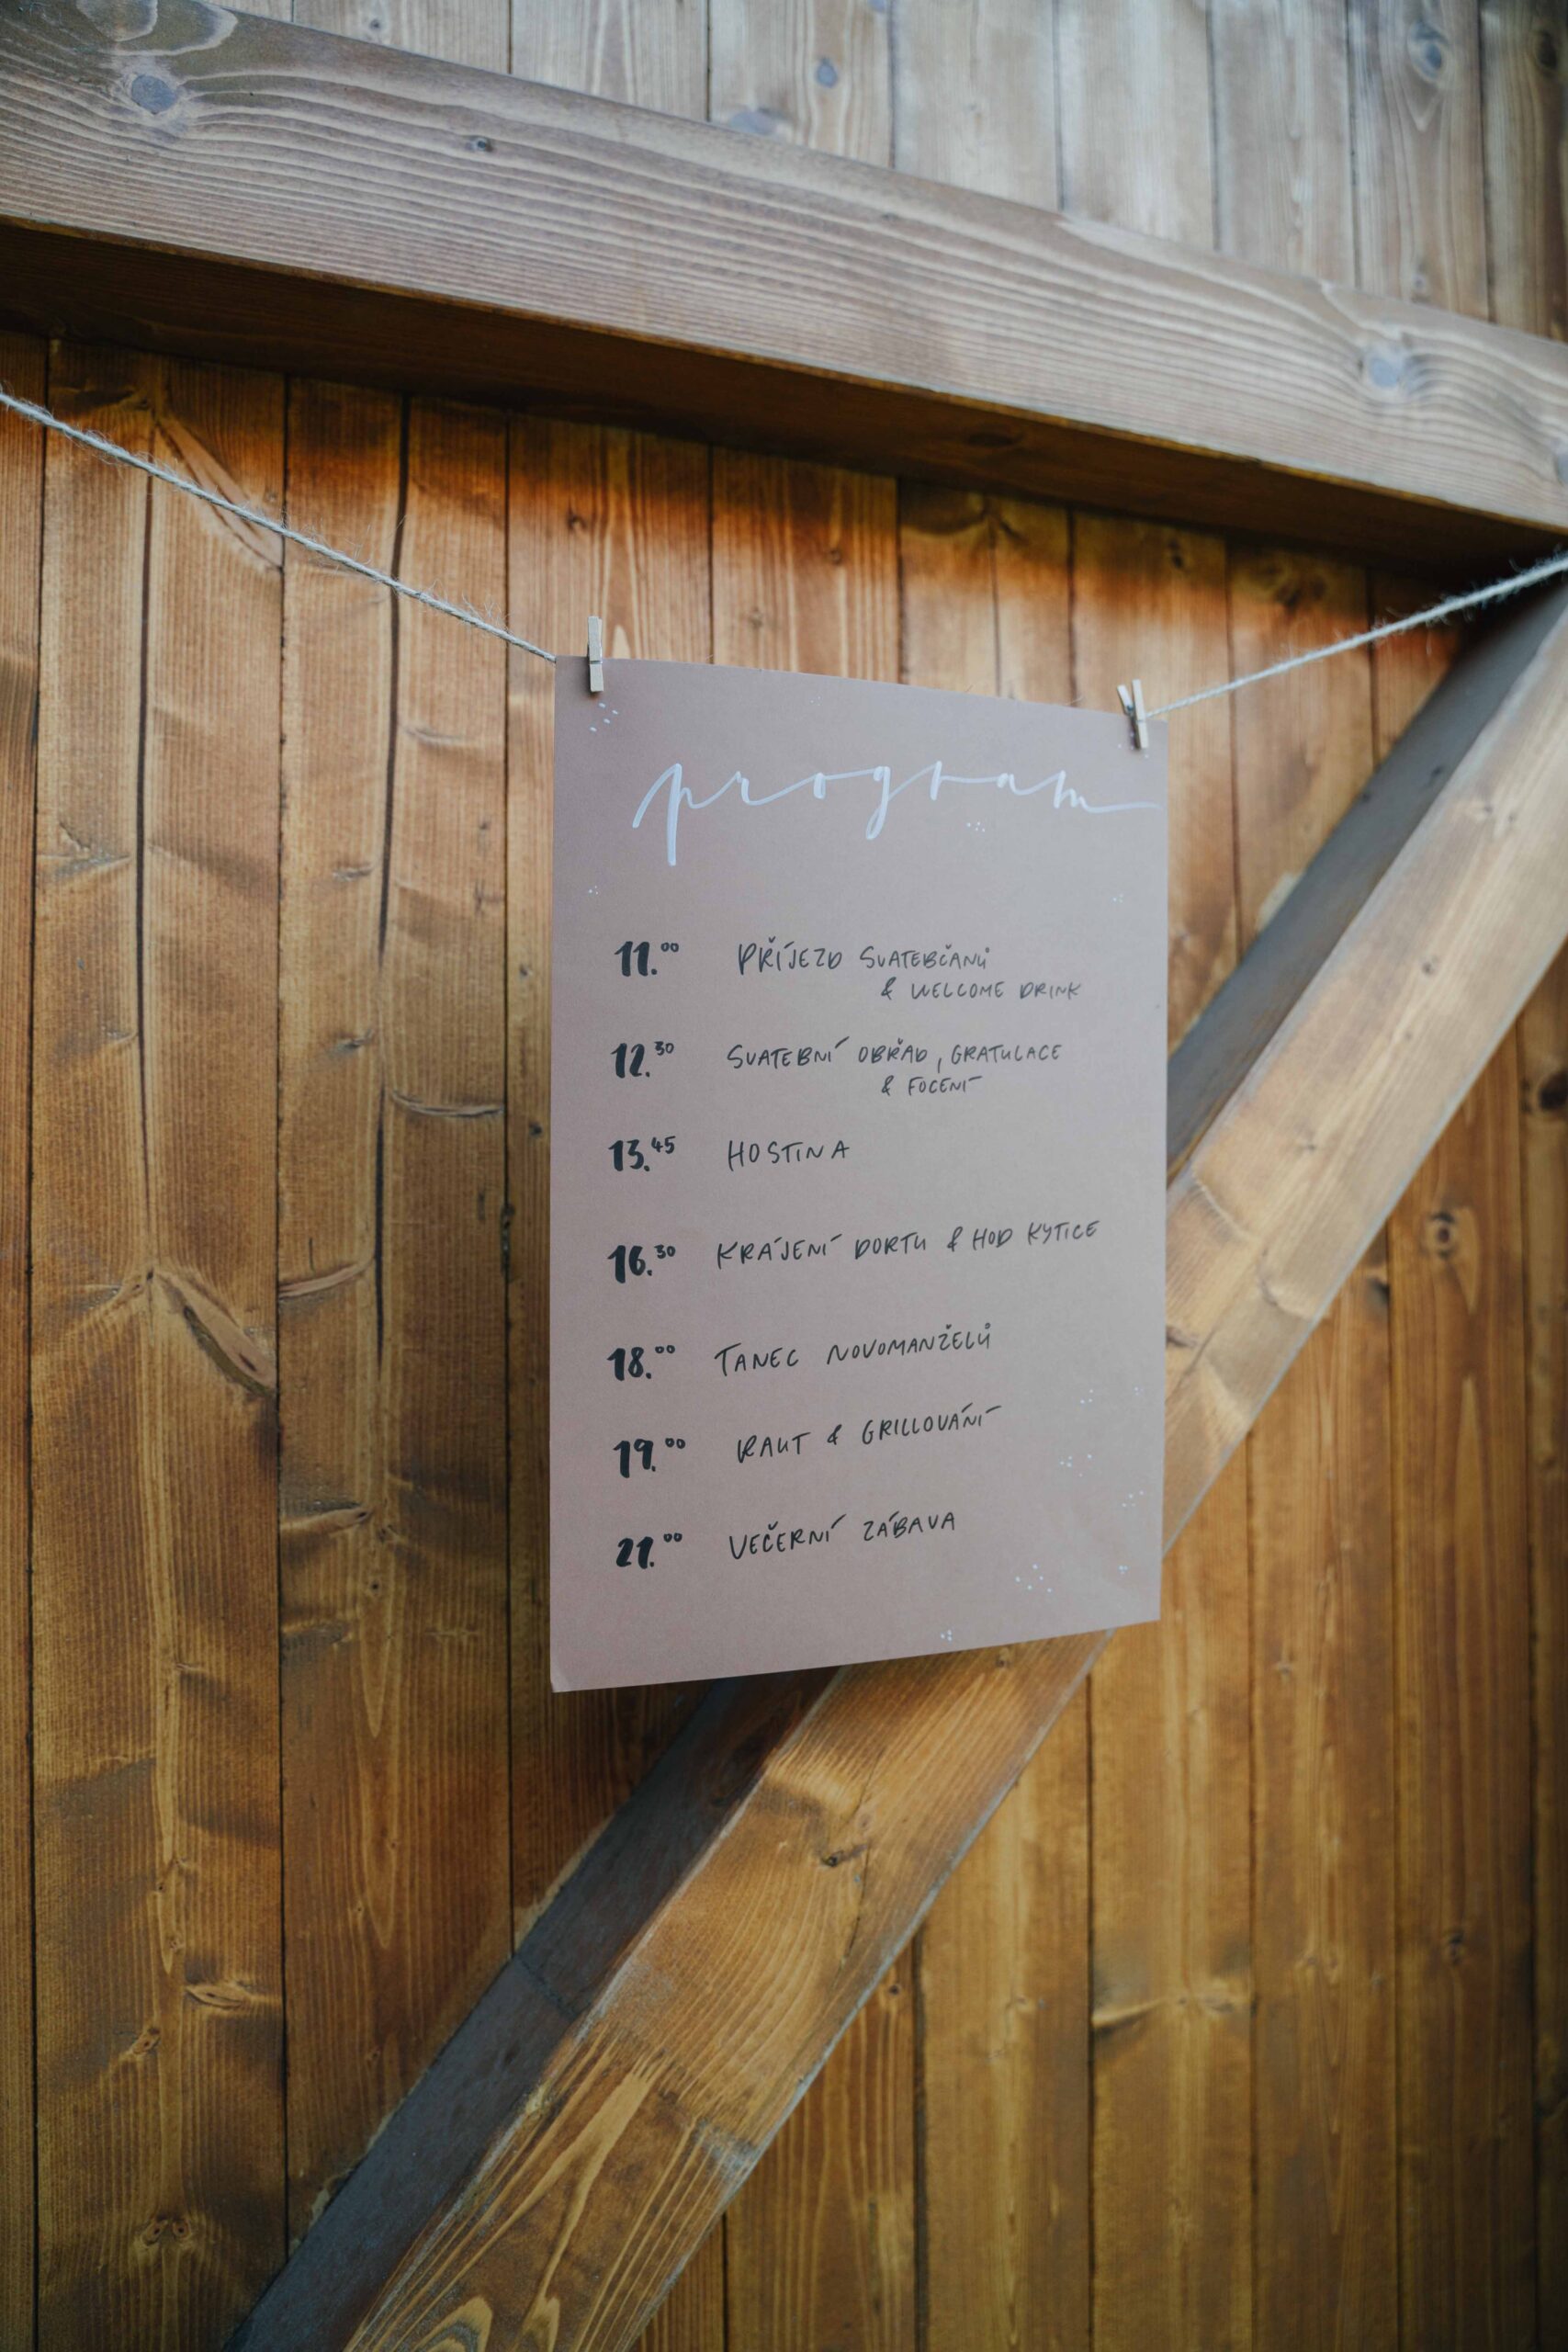 program
11.00 PŘÍJEZD SVATEBČANŮ
& WELCOME DRINK
12.30 SVATEBNÍ OBŘAD, GRATULACE
& FOCENÍ
13.45 HOSTINA
16.30 KRÁJENÍ DORTU & HOD KYTICE
18.00 TANEC NOVOMANŽELŮ
19.00 RAUT & GRILLOVÁNÍ
21.00 VEČERNÍ ZÁBAVA